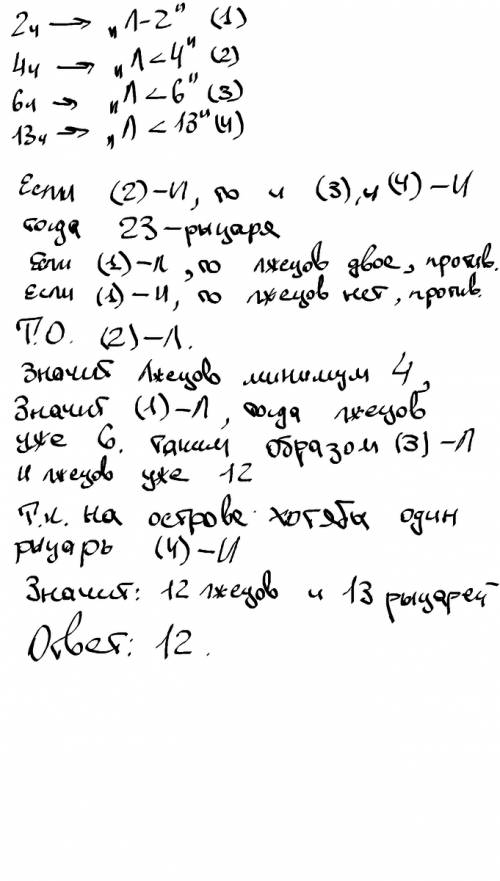 2ч → „Л-2" (1)
4ч → „Л<4" (2)
6ч → „Л<6" (3)
13ч → „Л<13" (4)
Если (2)-И, то и (3), и (4)-И
тогда 23-рыцаря
Если (1)-Л, то лжецов двое, против.
Если (1)-И, то лжецов нет, против.
Т.О. (2)-Л.
Значит лжецов минимум 4,
Значит (1)-Л, тогда лжецов
уже 6. таким образом (3)-Л
и лжецов уже 12
Т.к. на острове хотябы один
рыцарь (4)-И
Значит: 12 лжецов и 13 рыцарей
Ответ: 12.